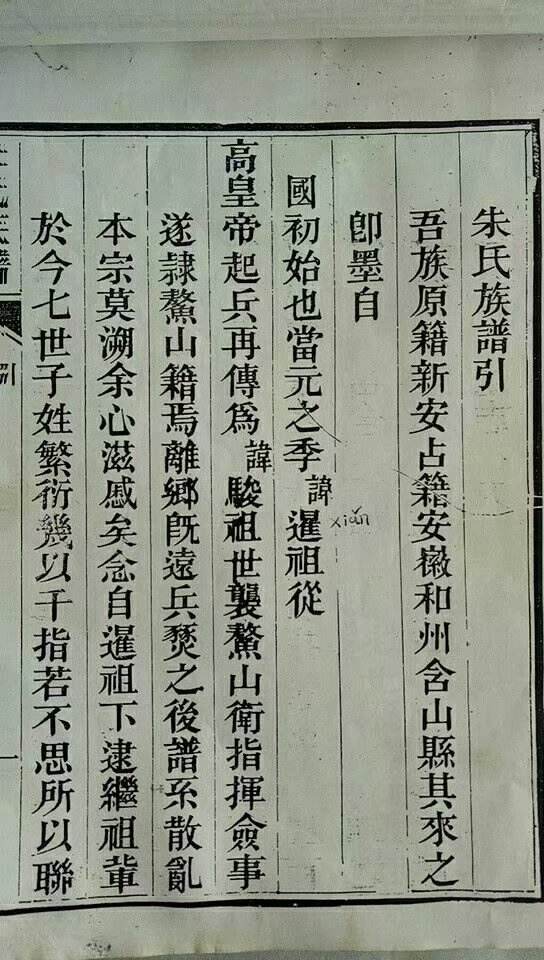 朱氏族譜引
吾族原籍新安占籍安徽和州含山縣其來之
卽墨自
國初始也當元之季諱暹祖從
xiān
高皇帝起兵再傳爲諱駿祖世襲鰲山衛指揮僉事
遂隷鰲山籍焉離鄉旣遠兵燹之後譜系散亂
本宗莫溯余心滋戚矣念自暹祖下逮繼祖輩
於今七世子姓繁衍幾以千指若不思所以聯